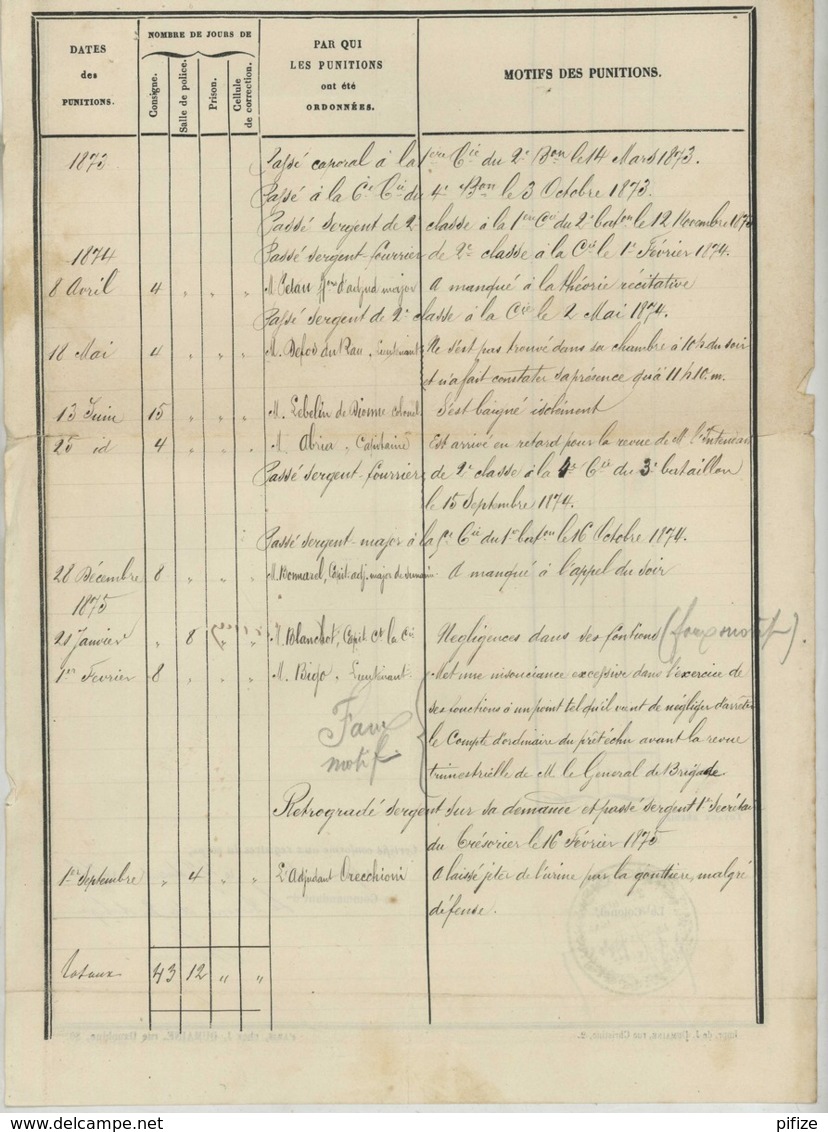 DATES
des
PUNITIONS.
NOMBRE DE JOURS DE
Consigne.
Salle de police.
Prison.
Cellule
de correction.
PAR QUI
LES PUNITIONS
ont été
ORDONNÉES.
MOTIFS DES PUNITIONS.
1873 Passé caporal à la 1ere Cie du 2e Bon le 14 Mars 1873.
Passé à la 6e Cie du 4e Bon le 3 Octobre 1873.
Passé Sergent de 2e classe à la 1ere Cie du 2e baton le 12 Novembre 1873
1874 Passé sergent fourrier de 2e classe à la Cie le 1er Février 1874.
8 Avril 4 " " " M. d'adjud major A manqué à la théorie récitative
Passé Sergent de 2e classe à la Cie le 2 Mai 1874.
18 Mai 4 " " " M. Defos du Rau, Lieutenant Ne s'est pas trouvé dans sa chambre à 10h du soir
et n'a fait constater sa présence qu'à 11h10m.
13 Juin 15 " " " M. Lebelin de Dionne colonel S'est baigné isolément
25 id 4 " " " M. Abria, Capitaine Est arrivé en retard pour la revue de Mr l'Intendant
Passé sergent-fourrier de 2e classe à la 4e Cie du 3e bataillon
le 15 Septembre 1874.
Passé sergent-major à la Cie du 1er baton le 16 Octobre 1874.
28 Décembre 8 " " " M. Bonnarel, Capit. adj. major de semaine A manqué à l'appel du soir
1875
21 Janvier " 8 " " M. Blanchot, Capit. Ct la Cie Négligences dans ses fontions (faux motif).
1er Février 8 " " " M. Bigo, Lieutenant Met une insouciance excessive dans l'exercice de
ses fonctions à un point tel qu'il vient de négliger d'arrêter
Faux
motif.
le Compte d'ordinaire du prêt échu avant la revue
trimestrielle de M. le Général de Brigade
Rétrogradé sergent sur sa demande et passé sergent 1er Secrétaire
du Trésorier le 16 Février 1875
1er Septembre " 4 " " L'Adjudant Orecchioni A laissé jeter de l'urine par la gouttière, malgré
défense.
Totaux 43 12 " "
PARIS, chez J. DUMAINE, rue Dauphine, 30
Impr. de J. DUMAINE, rue Christine, 2.
pifize